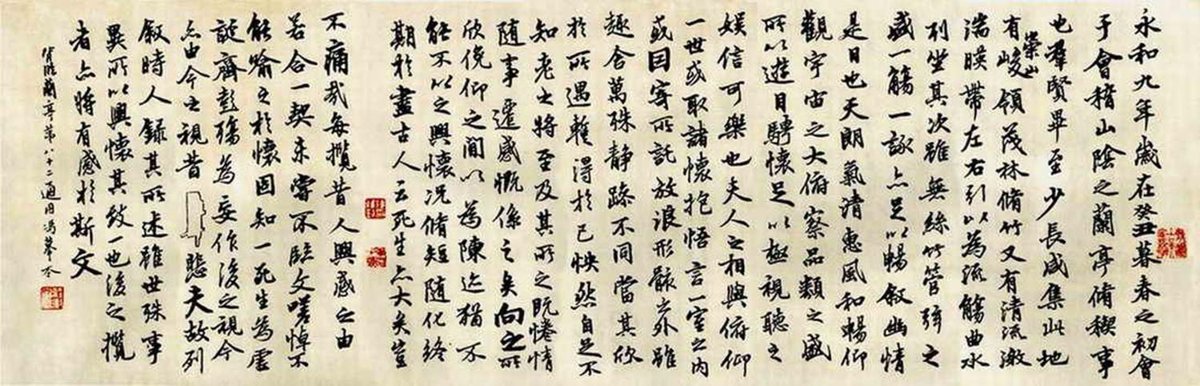 永和九年歲在癸丑暮春之初會
于會稽山陰之蘭亭脩稧事
也羣賢畢至少長咸集此地
有崇山峻領茂林脩竹又有清流激
湍暎帶左右引以為流觴曲水
列坐其次雖無絲竹管弦之
盛一觴一詠亦足以暢敘幽情
是日也天朗氣清惠風和暢仰
觀宇宙之大俯察品類之盛
所以遊目騁懷足以極視聽之
娛信可樂也夫人之相與俯仰
一世或取諸懷抱悟言一室之內
或因寄所託放浪形骸之外雖
趣舍萬殊靜躁不同當其欣
於所遇蹔得於己怏然自足不
知老之將至及其所之既惓情
隨事遷感慨係之矣向之所
欣俛仰之閒以為陳迹猶不
能不以之興懷況脩短隨化終
期於盡古人云死生亦大矣豈
不痛哉每攬昔人興感之由
若合一契未嘗不臨文嗟悼不
能喻之於懷固知一死生為虛
誕齊彭殤為妄作後之視今
亦由今之視昔悲夫故列
敘時人錄其所述雖世殊事
異所以興懷其致一也後之攬
者亦將有感於斯文
背臨蘭亭第八十二通